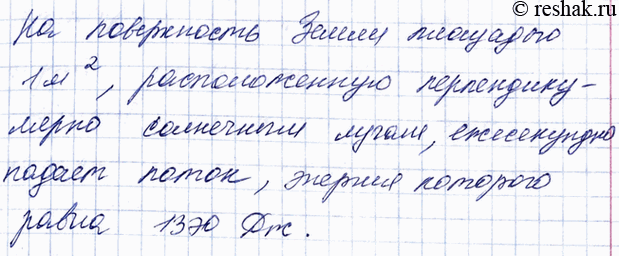 © reshak.ru
На поверхность Земли площадью
1м², расположенную перпендику-
лярно солнечным лучам, ежесекундно
падает поток, энергия которого
равна 1370 Дж.